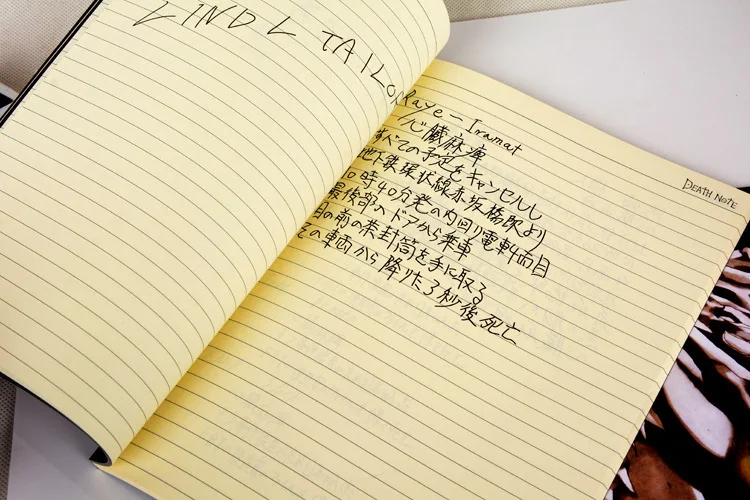 LIND L TAILO
DEATH NOTE
Raye - Iramat
心臓麻痺
すべての予定をキャンセルし
地下鉄環状線赤坂橋駅より
10時40分発の内回り電車4両目
最後部のドアから乗車
目の前の茶封筒を手に取る
その車両から降りた3秒後死亡